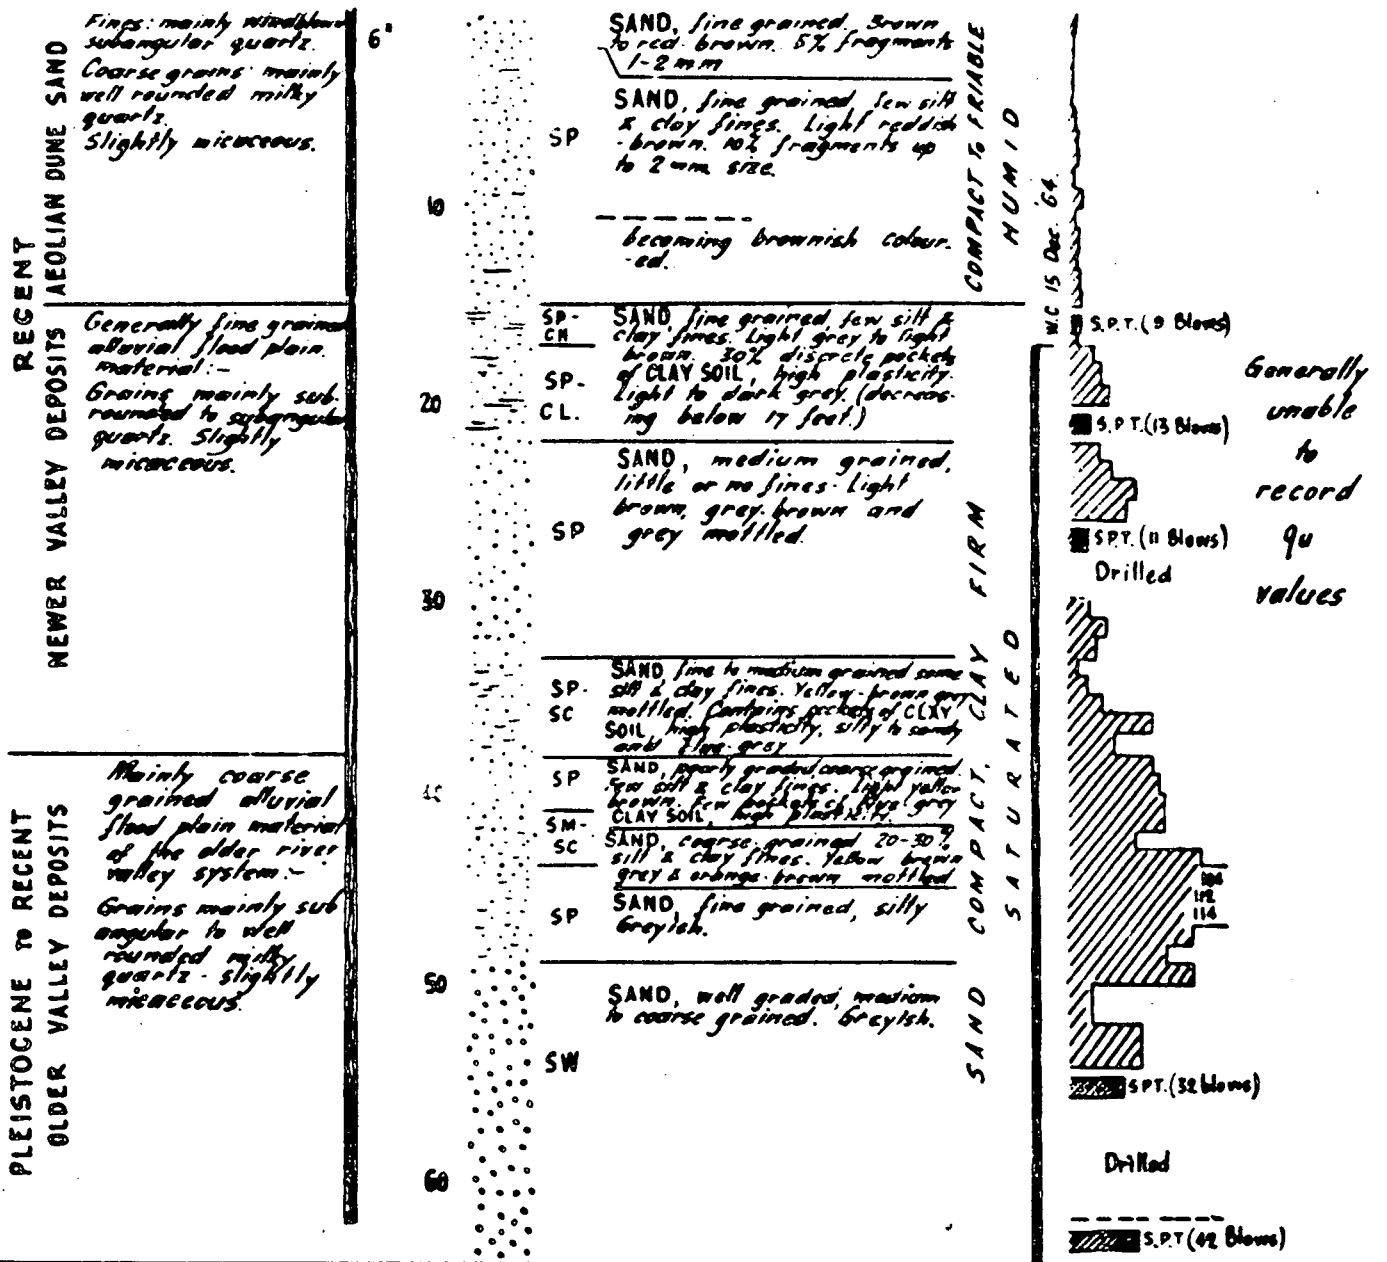 RECENT
AEOLIAN DUNE SAND
Fines: mainly windblown
subangular quartz.
Coarse grains mainly
well rounded milky
quartz.
Slightly micaceous.
NEWER VALLEY DEPOSITS
Generally fine grained
alluvial flood plain
material:-
Grains mainly sub-
rounded to subangular
quartz. Slightly
micaceous.
PLEISTOCENE TO RECENT
OLDER VALLEY DEPOSITS
Mainly coarse
grained alluvial
flood plain material
of the older river
valley system:-
Grains mainly sub
angular to well
rounded milky
quartz - slightly
micaceous.
6"
10
20
30
50
60
SAND, fine grained. Brown
to red-brown. 5% fragments
1-2 mm
SP
SAND, fine grained, few silt
& clay fines. Light reddish
-brown. 10% fragments up
to 2 mm size.
becoming brownish colour-
-ed.
SP-
CH
SP-
CL.
SAND, fine grained, few silt &
clay fines. Light grey to light
brown. 30% discrete pockets
of CLAY SOIL, high plasticity.
Light to dark grey. (decreas-
ing below 17 feet.)
SP
SAND, medium grained,
little or no fines. Light
brown, grey-brown and
grey mottled.
SP-
SC
SAND fine to medium grained some
silt & clay fines. Yellow-brown grey
mottled. Contains pockets of CLAY
SOIL, high plasticity, silty to sandy
and blue-grey
SP
SAND, poorly graded coarse grained.
Few silt & clay fines. Light yellow
brown. Few pockets of blue grey
CLAY SOIL, high plasticity.
SM-
SC
SAND, coarse grained 20-30%
silt & clay fines. Yellow brown
grey & orange-brown mottled
SP
SAND, fine grained, silty
Greyish.
SW
SAND, well graded, medium
to coarse grained. Greyish.
COMPACT TO FRIABLE
HUMID
SAND COMPACT, CLAY FIRM
SATURATED
W.C 15 Dec. '64.
S.P.T. (9 Blows)
S.P.T. (13 Blows)
S.P.T. (11 Blows)
Drilled
112
114
S.P.T. (32 blows)
Drilled
S.P.T (42 Blows)
Generally
unable
to
record
qu
values